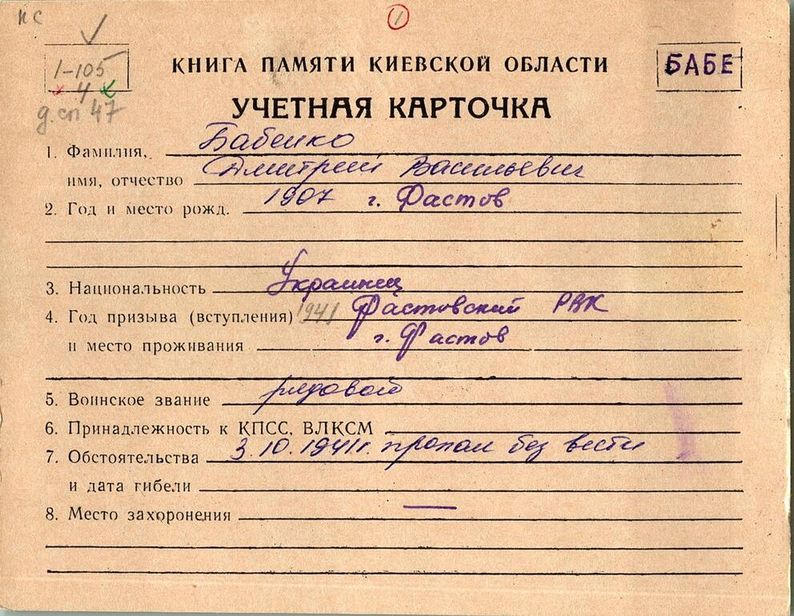 ПС
1
1-105
4
д.сп 47
КНИГА ПАМЯТИ КИЕВСКОЙ ОБЛАСТИ
БАБЕ
УЧЕТНАЯ КАРТОЧКА
1. Фамилия, Бабенко
имя, отчество Дмитрий Васильевич
2. Год и место рожд. 1907 г. Фастов
3. Национальность Украинец
4. Год призыва (вступления) 1941 Фастовский РВК
и место проживания г. Фастов
5. Воинское звание рядовой
6. Принадлежность к КПСС, ВЛКСМ
7. Обстоятельства 3.10.1941г. пропал без вести
и дата гибели
8. Место захоронения —